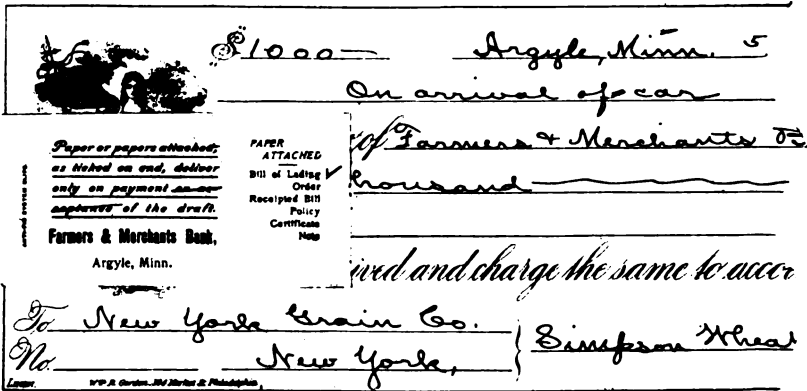 $1000— Argyle, Minn. 5
On arrival of car
of Farmers & Merchants
housand
ived and charge the same to accou
Paper or papers attached,
as ticked on end, deliver
only on payment or ac-
ceptance of the draft.
Farmers & Merchants Bank,
Argyle, Minn.
PAPER
ATTACHED
Bill of Lading ✓
Order
Receipted Bill
Policy
Certificate
Note
To New York Grain Co.
No. New York,
Simpson Wheat
Wm. R. Gordon. 3rd Market & Philadelphia,